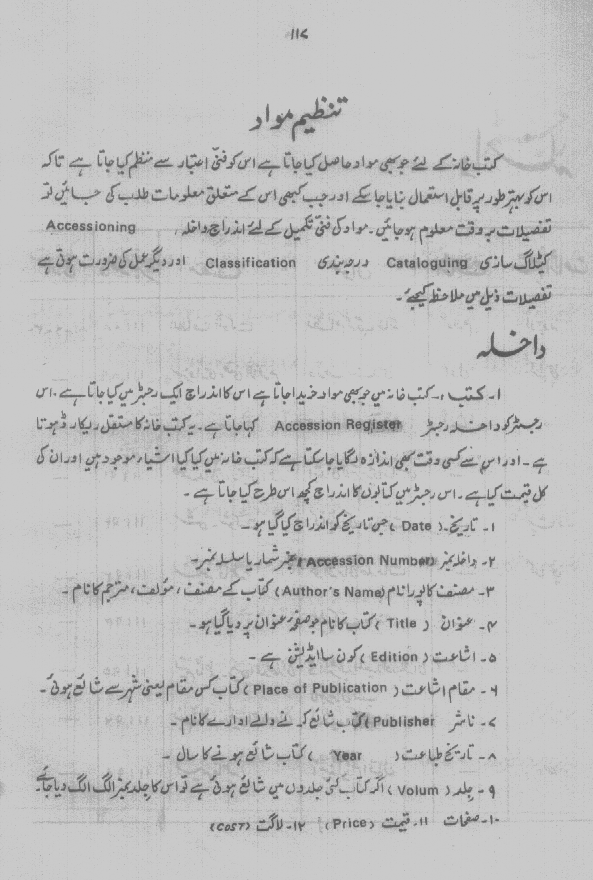 ۱۱۷
تنظیم مواد
کتب خانہ کے لئے جو بھی مواد حاصل کیا جاتا ہے اس کو فنّی اعتبار سے منظم کیا جاتا ہے تاکہ
اس کو بہتر طور پر قابل استعمال بنایا جا سکے اور جب کبھی اس کے متعلق معلومات طلب کی جائیں تو
تفصیلات بر وقت معلوم ہو جائیں۔ مواد کی فنی تکمیل کے لئے اندراج داخلہ، Accessioning
کیٹلاگ سازی Cataloguing درجہ بندی Classification اور دیگر عمل کی ضرورت ہوتی ہے
تفصیلات ذیل میں ملاحظہ کیجئے۔
داخلہ
۱۔ کتب :۔ کتب خانہ میں جو بھی مواد خریدا جاتا ہے اس کا اندراج ایک رجسٹر میں کیا جاتا ہے۔ اس
رجسٹر کو داخلہ رجسٹر Accession Register کہا جاتا ہے۔ یہ کتب خانہ کا مستقل ریکارڈ ہوتا
ہے۔ اور اس سے کسی وقت بھی اندازہ لگایا جا سکتا ہے کہ کتب خانہ میں کیا کیا اشیاء موجود ہیں اور ان کی
کل قیمت کیا ہے۔ اس رجسٹر میں کتابوں کا اندراج کچھ اس طرح کیا جاتا ہے۔
۱۔ تاریخ۔ (Date) جس تاریخ کو اندراج کیا گیا ہو۔
۲۔ داخلہ نمبر (Accession Number) نمبر شمار یا سلسلہ نمبر۔
۳۔ مصنف کا پورا نام (Author's Name) کتاب کے مصنف، مؤلف، مترجم کا نام۔
۴۔ عنوان (Title) کتاب کا نام جو صفحہ عنوان پر دیا گیا ہو۔
۵۔ اشاعت (Edition) کون سا ایڈیشن ہے۔
۶۔ مقام اشاعت (Place of Publication) کتاب کس مقام یعنی شہر سے شائع ہوئی۔
۷۔ ناشر (Publisher) کتاب شائع کرنے والے ادارے کا نام۔
۸۔ تاریخ طباعت (Year) کتاب شائع ہونے کا سال۔
۹۔ جلد (Volum) اگر کتاب کئی جلدوں میں شائع ہوئی ہے تو اس کا جلد نمبر الگ الگ دیا جائے۔
۱۰۔ صفحات ۱۱۔ قیمت (Price) ۱۲۔ لاگت (COST)